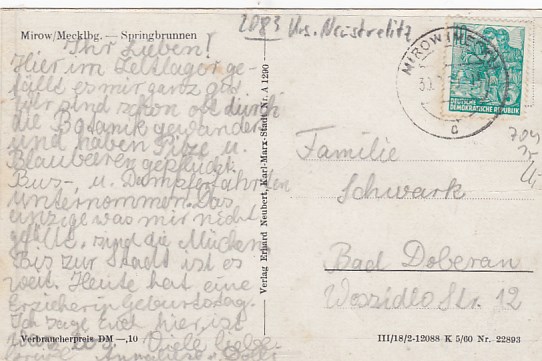 2083 Krs. Neustrelitz
Mirow/Mecklbg. — Springbrunnen
Ihr Lieben!
Hier im Zeltlager ge-
fällt es mir ganz gut
Wir sind schon oft durch
die Botanik gewandert
und haben Pilze u.
Blaubeeren gepflückt.
Bus-, u. Dampferfahrten
unternommen. Das
einzige was mir nicht
gefällt, sind die Mücken
Bis zur Stadt ist es
weit. Heute hat eine
Erzieherin Geburtstag.
Ich sage Euch hier ist
Viele liebe
Verbraucherpreis DM —,10
Verlag Erhard Neubert, Karl-Marx-Stadt, Nr. A 1290
MIROW (MECKL
30
c
DEUTSCHE
DEMOKRATISCHE REPUBLIK
5
Familie
Schwark
Bad Doberan
Woszidlo Str. 12
III/18/2-12088 K 5/60 Nr. 22893